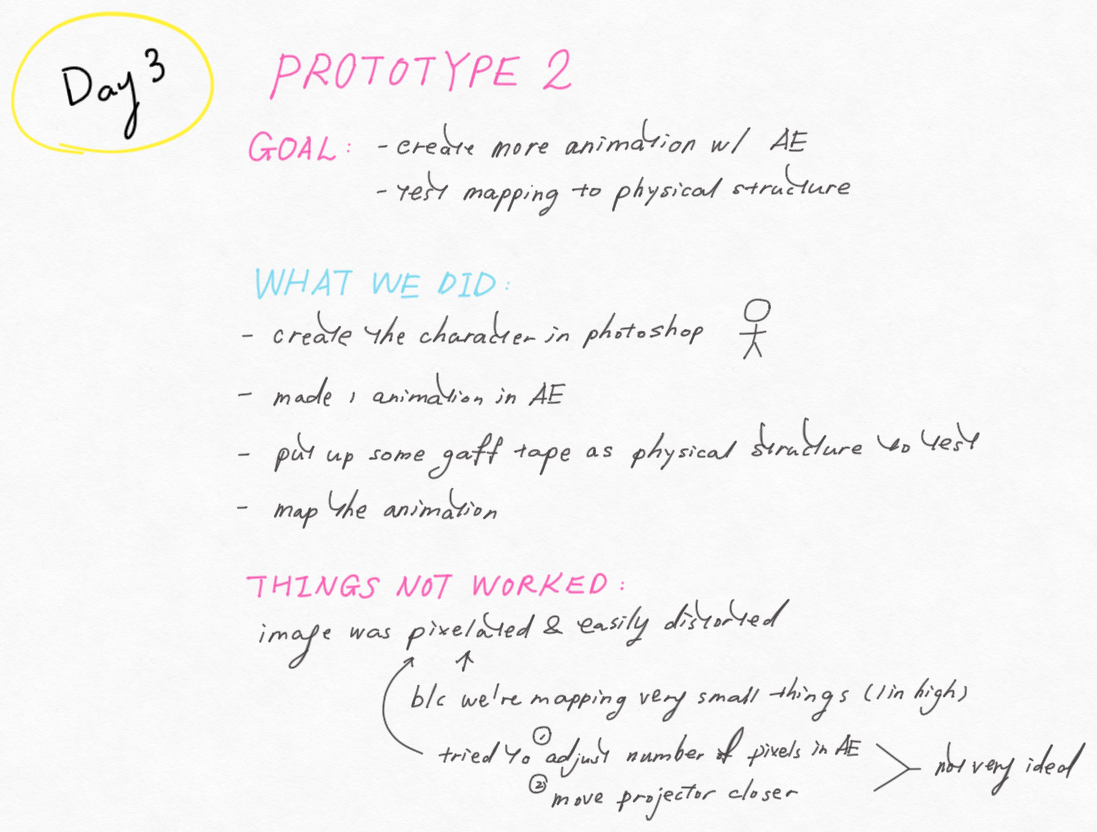 Day 3
PROTOTYPE 2
GOAL: - create more animation w/ AE
- test mapping to physical structure
WHAT WE DID:
- create the character in photoshop
- made 1 animation in AE
- put up some gaff tape as physical structure to test
- map the animation
THINGS NOT WORKED:
image was pixelated & easily distorted
b/c we're mapping very small things (1in high)
tried to ① adjust number of pixels in AE
② move projector closer
not very ideal